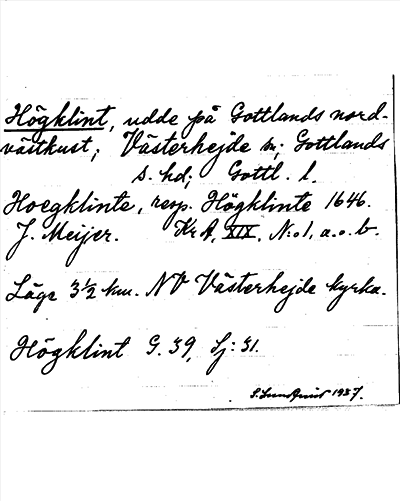 Högklint, udde på Gottlands nord-
västkust; Västerhejde sn; Gottlands
s. hd; Gottl. l.
Hoegklinte, resp. Högklinte 1646.
J. Meijer. KrA, XIX, N:o 1, a. o. b.
Läge 3½ km. NV Västerhejde kyrka.
Högklint G. 39, Sj: 31.
S. Lundquist 1937.